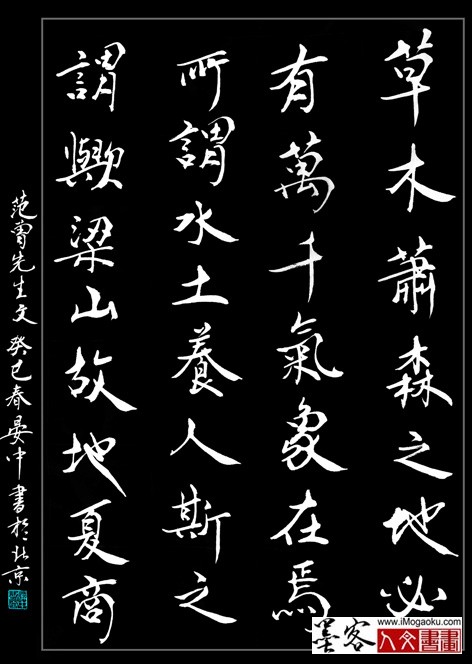 草木蕭森之地必
有萬千氣象在焉
所謂水土養人斯之
謂歟梁山故地夏商
范曾先生文 癸巳春晏中書於北京
墨客
www.iMogaoku.com
人文書畫